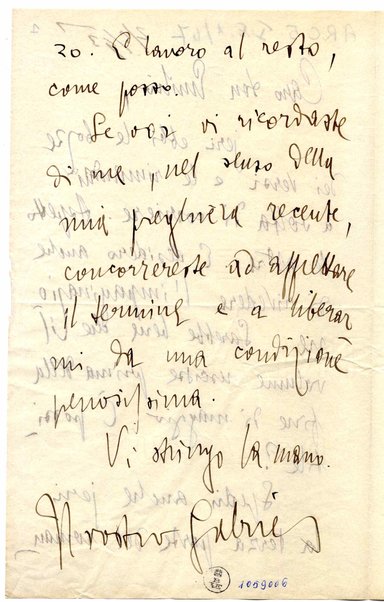 zo. E lavoro al resto,
come posso.
Se voi vi ricordaste
di me, nel senso della
mia preghiera recente,
concorrereste ad affrettare
il termine e a liberar
mi da una condizione
penosissima.
Vi stringo la mano.
Il vostro Gabriel
1059006